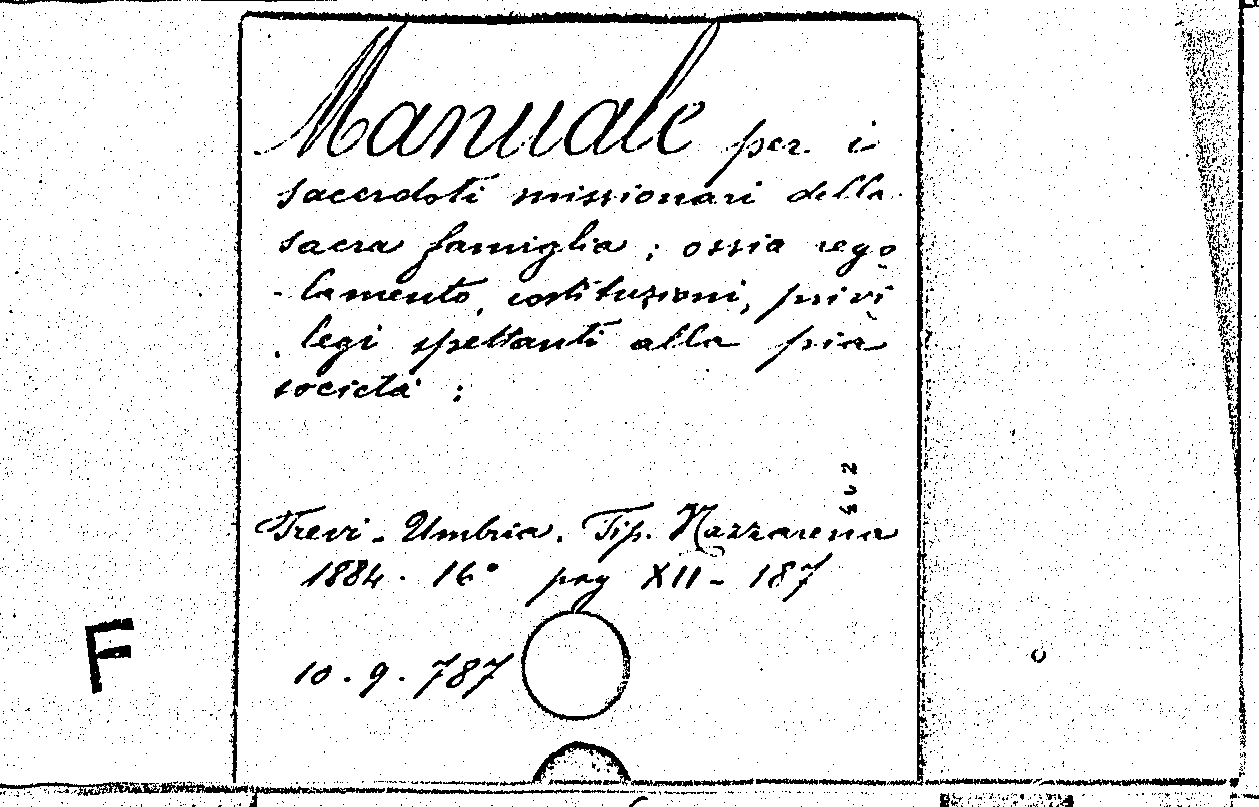 Manuale per i
sacerdoti missionari della
sacra famiglia ; ossia rego
- lamento, costituzioni, privi
- legi spettanti alla pia
società ;
Trevi - Umbria. Tip. Nazzarena
1884. 16° pag XII - 187
10. 9. 787
F